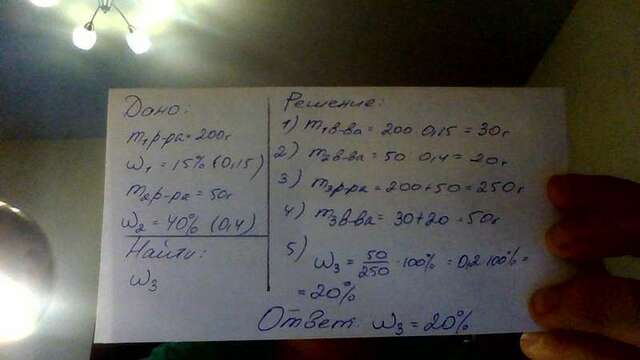 Дано:
m₁р-ра = 200г
ω₁ = 15% (0,15)
m₂р-ра = 50г
ω₂ = 40% (0,4)
Найти:
ω₃
Решение:
1) m₁в-ва = 200 · 0,15 = 30г
2) m₂в-ва = 50 · 0,4 = 20г
3) m₃р-ра = 200+50 = 250г
4) m₃в-ва = 30+20 = 50г
5) ω₃ = 50/250 · 100% = 0,2 · 100% =
= 20%
Ответ: ω₃ = 20%